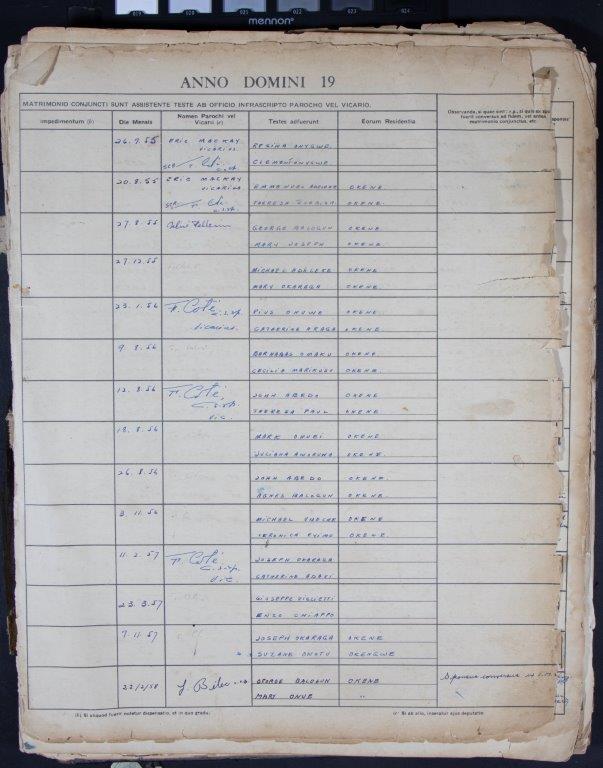 019 020 021 022 023 024
mennon
ANNO DOMINI 19
MATRIMONIO CONJUNCTI SUNT ASSISTENTE TESTE AB OFFICIO INFRASCRIPTO PAROCHO VEL VICARIO.
Impedimentum (b) Die Mensis Nomen Parochi vel Vicarii (c) Testes adfuerunt Eorum Residentia
Observanda, si quae sint: e.g., si quis ex sponsis
fuerit conversus ad fidem, vel antea
matrimonio conjunctus, etc.
26.7.55 ERIC MACKAY REGINA ONYGWE
VICARIUS
CLEMENT ONYGWE
c.s.sp.
20.8.55 ERIC MACKAY EMMANUEL OKENE
VICARIUS
THERESA OKENE
c.s.sp.
27.8.55 GEORGE BALOGUN OKENE
MARY JOSEPH OKENE
27.12.55 MICHAEL ADELEKE OKENE
MARY OKARAGA OKENE
23.1.56 F. Coté c.s.sp. PIUS ONUWE OKENE
vicarius CATHERINE ARAGA OKENE
9.8.56 BARNABAS OMAKU OKENE
CECILIA MARIKUDO OKENE
12.8.56 F. Coté, JOHN ABEDO OKENE
c.s.sp. THERESA PAUL OKENE
vic.
18.8.56 MARK ONUBI OKENE
JULIANA OKENE
26.8.56 JOHN ABEDO OKENE
AGNES BALOGUN OKENE
3.11.56 MICHAEL OKENE
VERONICA OKENE
11.2.57 F. Coté JOSEPH OKARAGA
c.s.sp. CATHERINE ADAVI
vic.
23.3.57 GIUSEPPE VIGLIETTI
ENZO CHIAPPO
7.11.57 JOSEPH OKARAGA OKENE
SUZANE ONOTU OKENGWE
22/2/58 J. GEORGE BALOGUN OKENE
MARY ONUE "
(b) Si aliquod fuerit notetur dispensatio, et in quo gradu. (c) Si ab alio, inseratur ejus deputatio